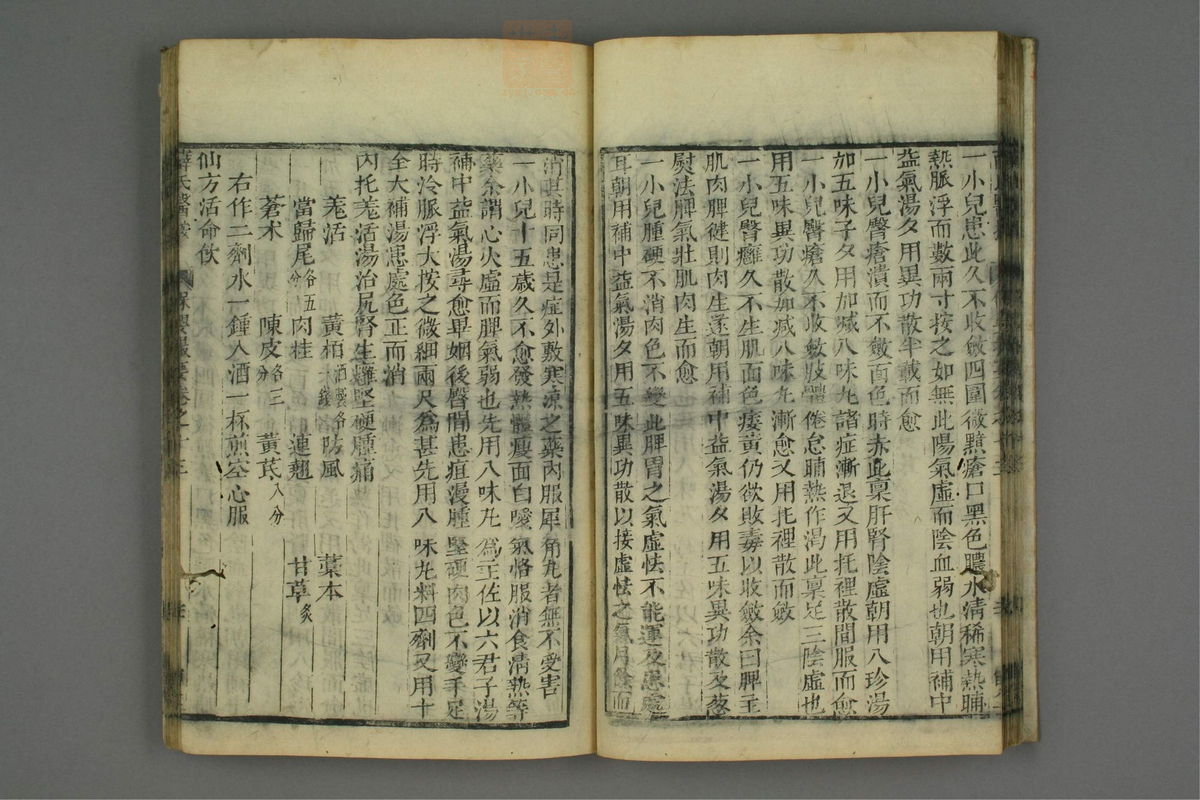 一小兒患此久不收斂四圍微黯瘡口黑色膿水清稀寒熱晡
熱脈浮而數兩寸按之如無此陽氣虛而陰血弱也朝用補中
益氣湯夕用異功散半載而愈
一小兒臀瘡潰而不斂面色時赤此稟肝腎陰虛朝用八珍湯
加五味子夕用加減八味丸諸症漸退又用托裡散間服而愈
一小兒臀瘡久不收斂肢體倦怠晡熱作渴此稟足三陰虛也
用五味異功散加減八味丸漸愈又用托裡散而斂
一小兒臀癰久不生肌面色痿黃仍欲敗毒以收斂余曰脾主
肌肉脾健則肉生遂朝用補中益氣湯夕用五味異功散及葱
熨法脾氣壯肌肉生而愈
一小兒腫硬不消肉色不變此脾胃之氣虛怯不能運及患處
耳朝用補中益氣湯夕用五味異功散以接虛怯之氣月餘而
消其時同患是症外敷寒涼之藥內服犀角丸者無不受害
一小兒十五歲久不愈發熱體瘦面白噯氣恪服消食清熱等
藥余謂心火虛而脾氣弱也先用八味丸為主佐以六君子湯
補中益氣湯尋愈畢姻後臀間患疽漫腫堅硬肉色不變手足
時冷脈浮大按之微細兩尺為甚先用八味丸料四劑又用十
全大補湯患處色正而消
內托羗活湯治尻腎生癰堅硬腫痛
羗活 黃栢酒製各二錢 防風 藁本
當歸尾各五分 肉桂 連翹 甘草炙
蒼朮 陳皮各三分 黃芪八分
右作二劑水一鍾入酒一杯煎空心服
仙方活命飲
薛氏醫案 保嬰撮要卷之十三